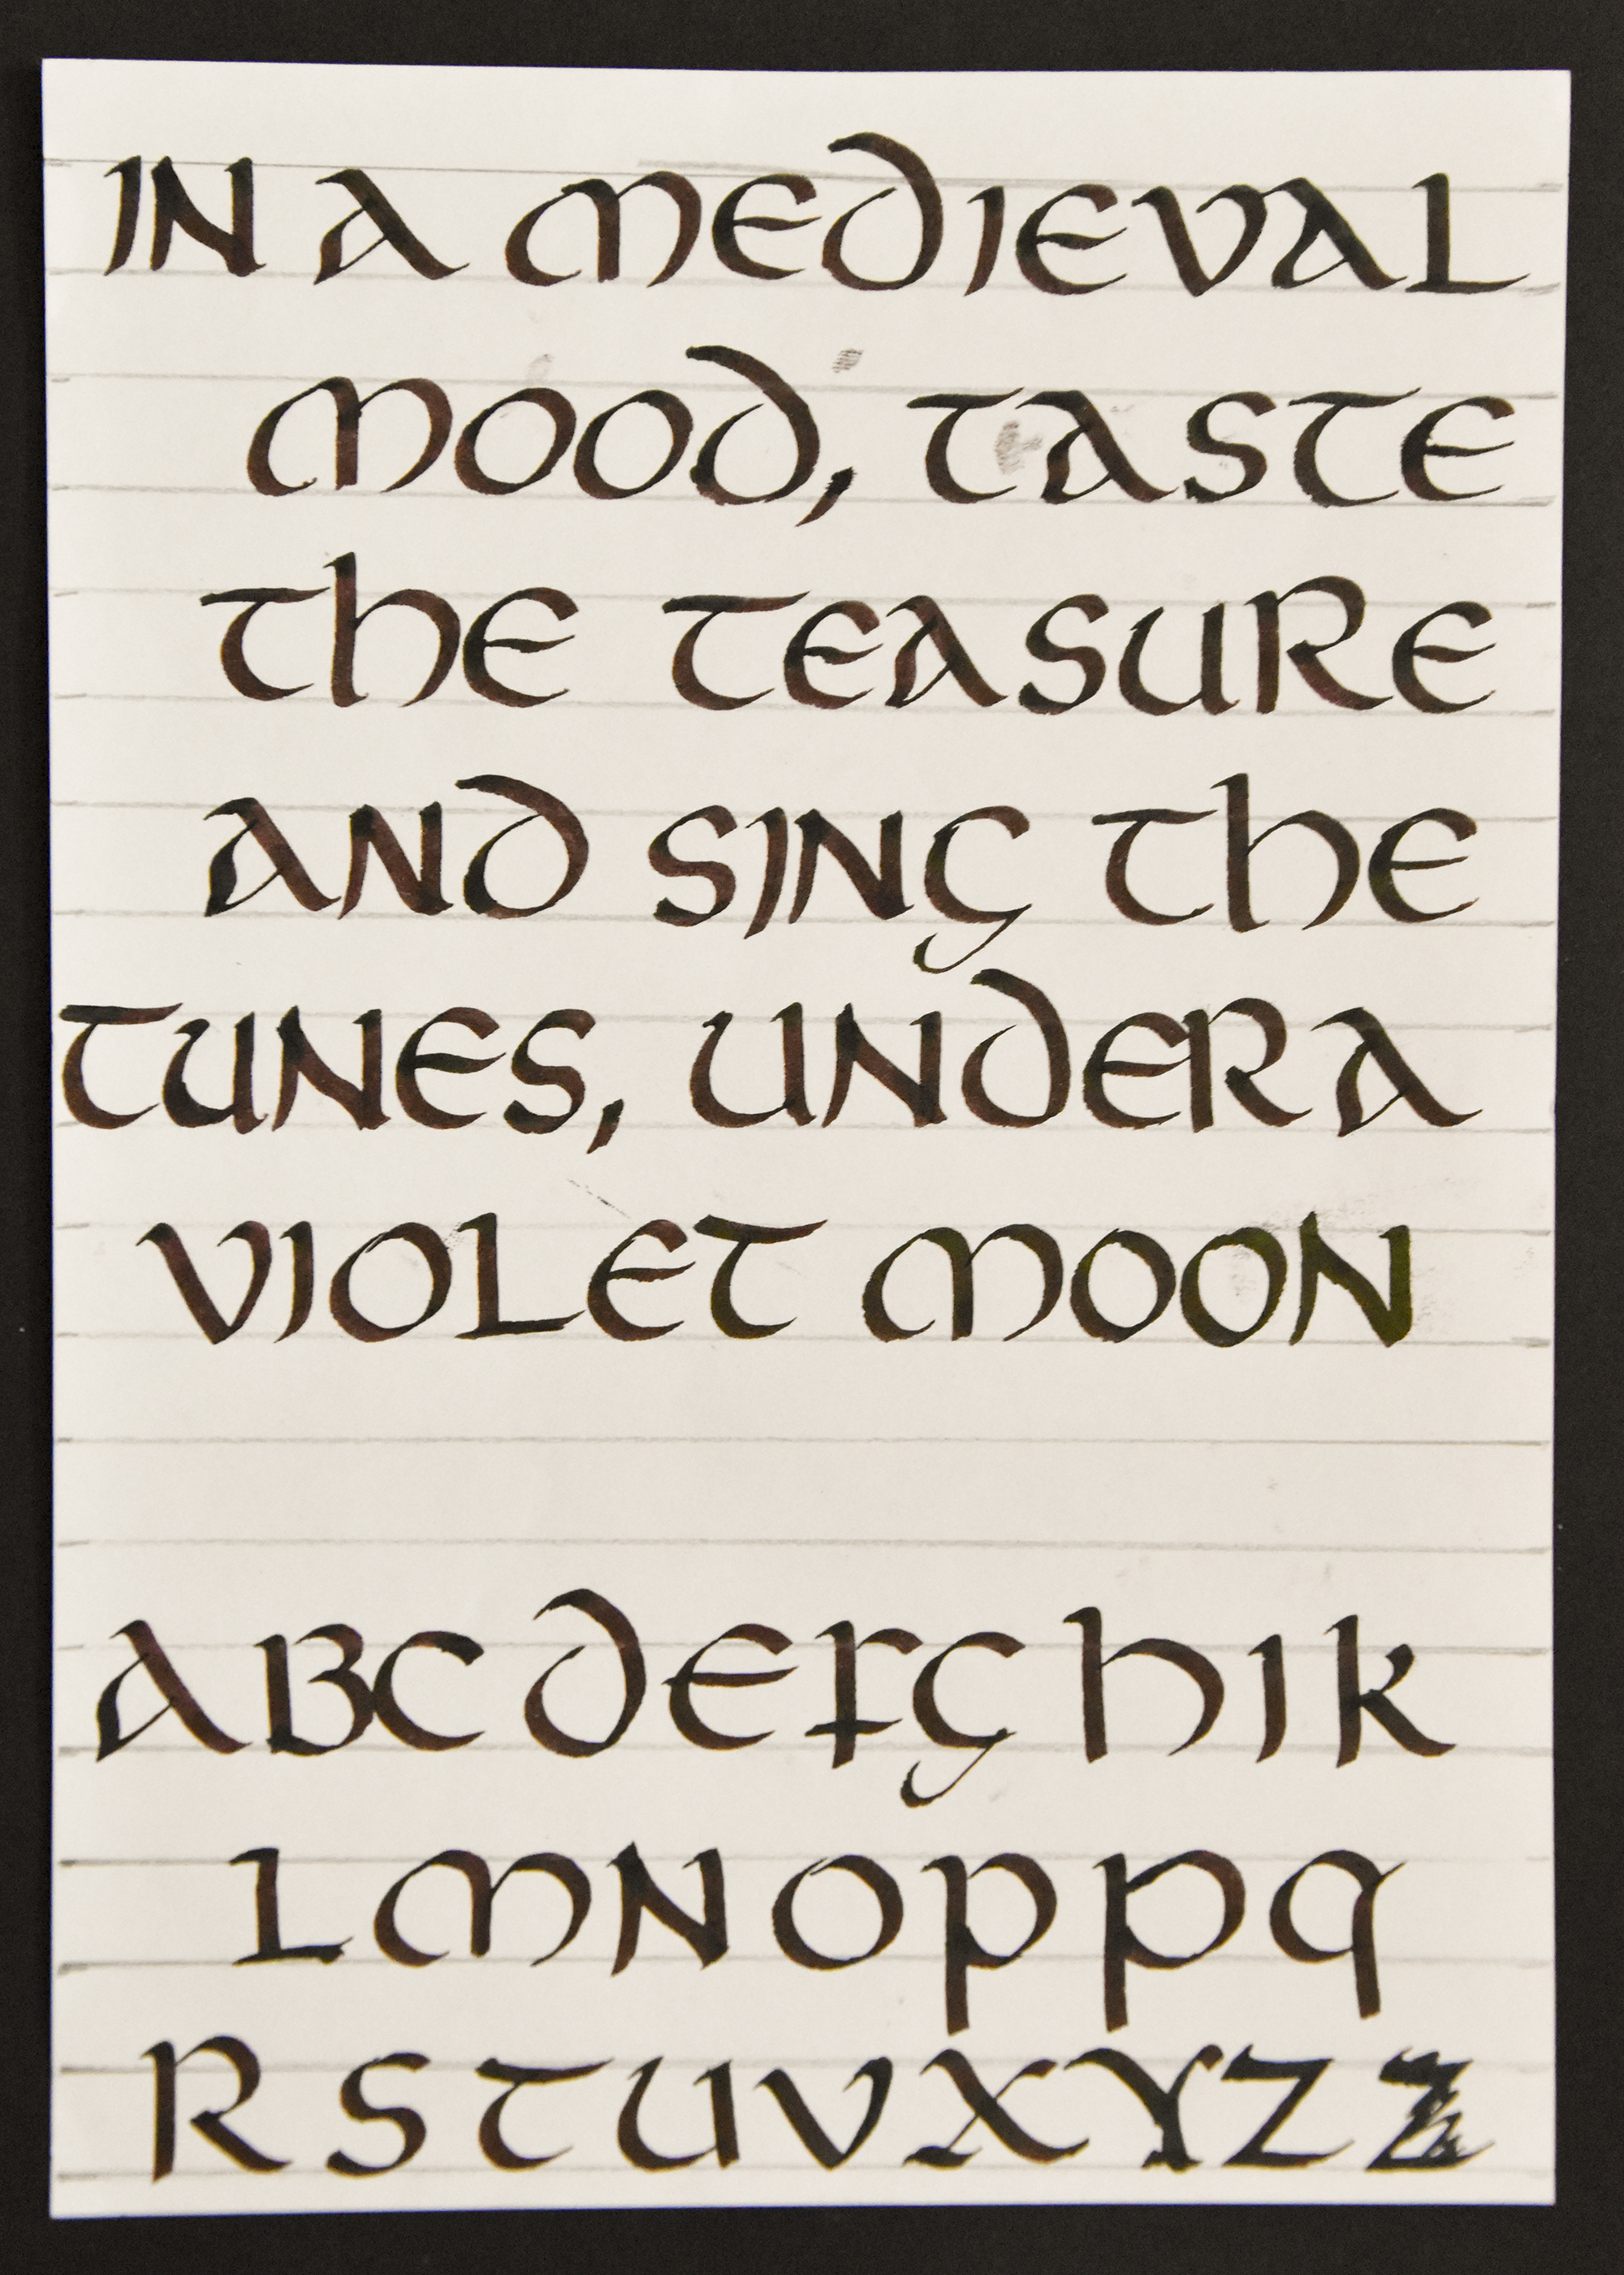 IN A MEDIEVAL
MOOD, TASTE
THE TEASURE
AND SING THE
TUNES, UNDER A
VIOLET MOON
A B C D E F G H I K
L M N O P P Q
R S T U V X Y Z Z